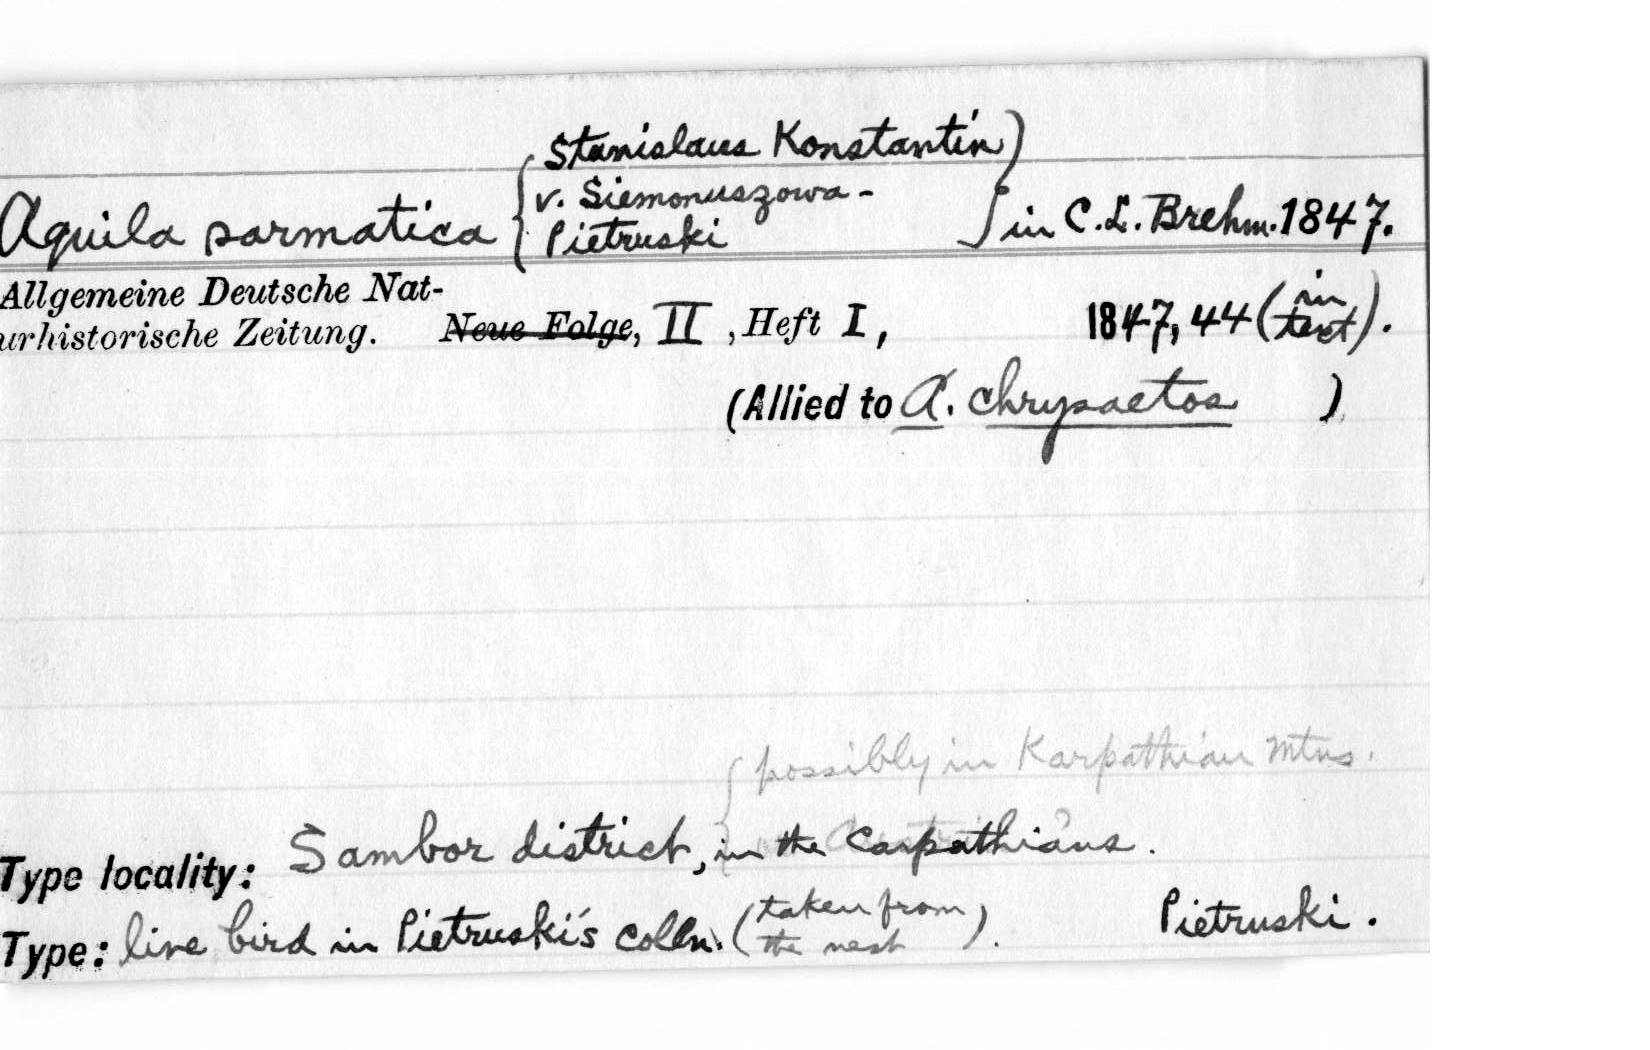 Stanislaus Konstantin
v. Siemonuszowa-
Aquila sarmatica Pietruski in C. L. Brehm. 1847.
Allgemeine Deutsche Nat-
urhistorische Zeitung. Neue Folge, II, Heft I, 1847, 44 (in text).
(Allied to A. chrysaetos )
possibly in Karpathian Mtns.
Type locality: Sambor district, in the Carpathians.
Type: live bird in Pietruski's colln. (taken from the nest). Pietruski.